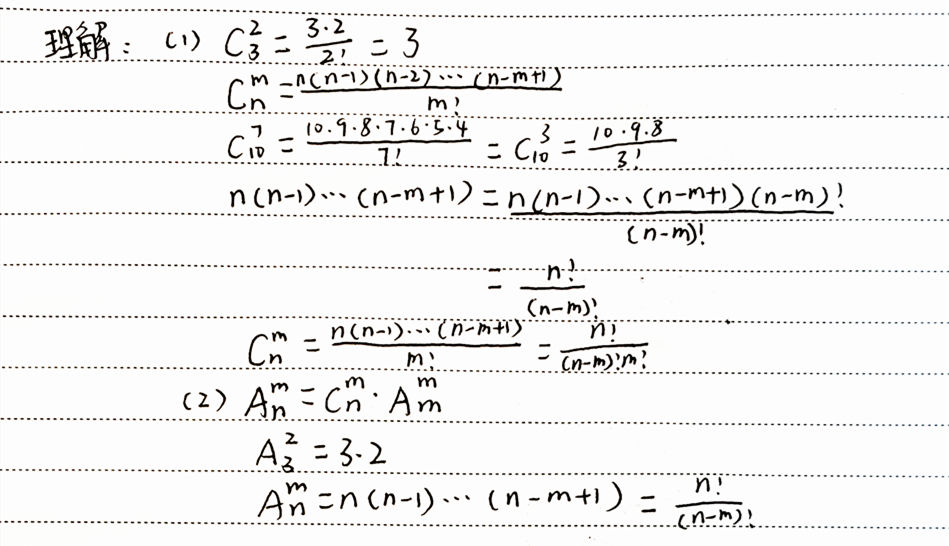 理解: (1) C₃² = 3·2/2! = 3
Cₙᵐ = n(n-1)(n-2)···(n-m+1)/m!
C₁₀⁷ = 10·9·8·7·6·5·4/7! = C₁₀³ = 10·9·8/3!
n(n-1)···(n-m+1) = n(n-1)···(n-m+1)(n-m)!/(n-m)!
= n!/(n-m)!
Cₙᵐ = n(n-1)···(n-m+1)/m! = n!/(n-m)!m!
(2) Aₙᵐ = Cₙᵐ · Aₘᵐ
A₃² = 3·2
Aₙᵐ = n(n-1)···(n-m+1) = n!/(n-m)!